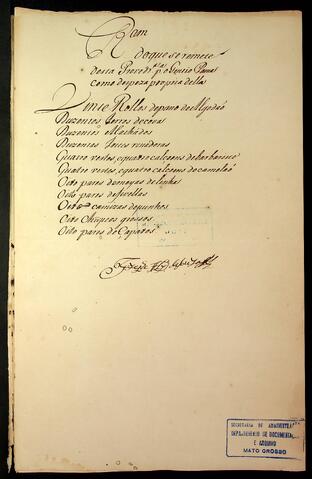 Rcam
do que se remete
desta Proved.ra p.a o Guaio Pama
como despeza propria della
Vinte Rollos de pano de Algodaõ
Duzentos ferros de cova
Duzentos Machados
Duzentos fouces roudeiras
Quatro vestes, e quatro calçoens de barbarisco
Quatro vestes, e quatro calçoens de camelaõ
Oito pares de meyas de linha
Oito pares de fivellas
Oito camizas de punhos
Oito Chapeos grossos
Oito pares de Çapatos
SECRETARIA DE ADMINISTRAÇÃO
DEPARTAMENTO DE DOCUMENTAÇÃO
E ARQUIVO
MATO GROSSO